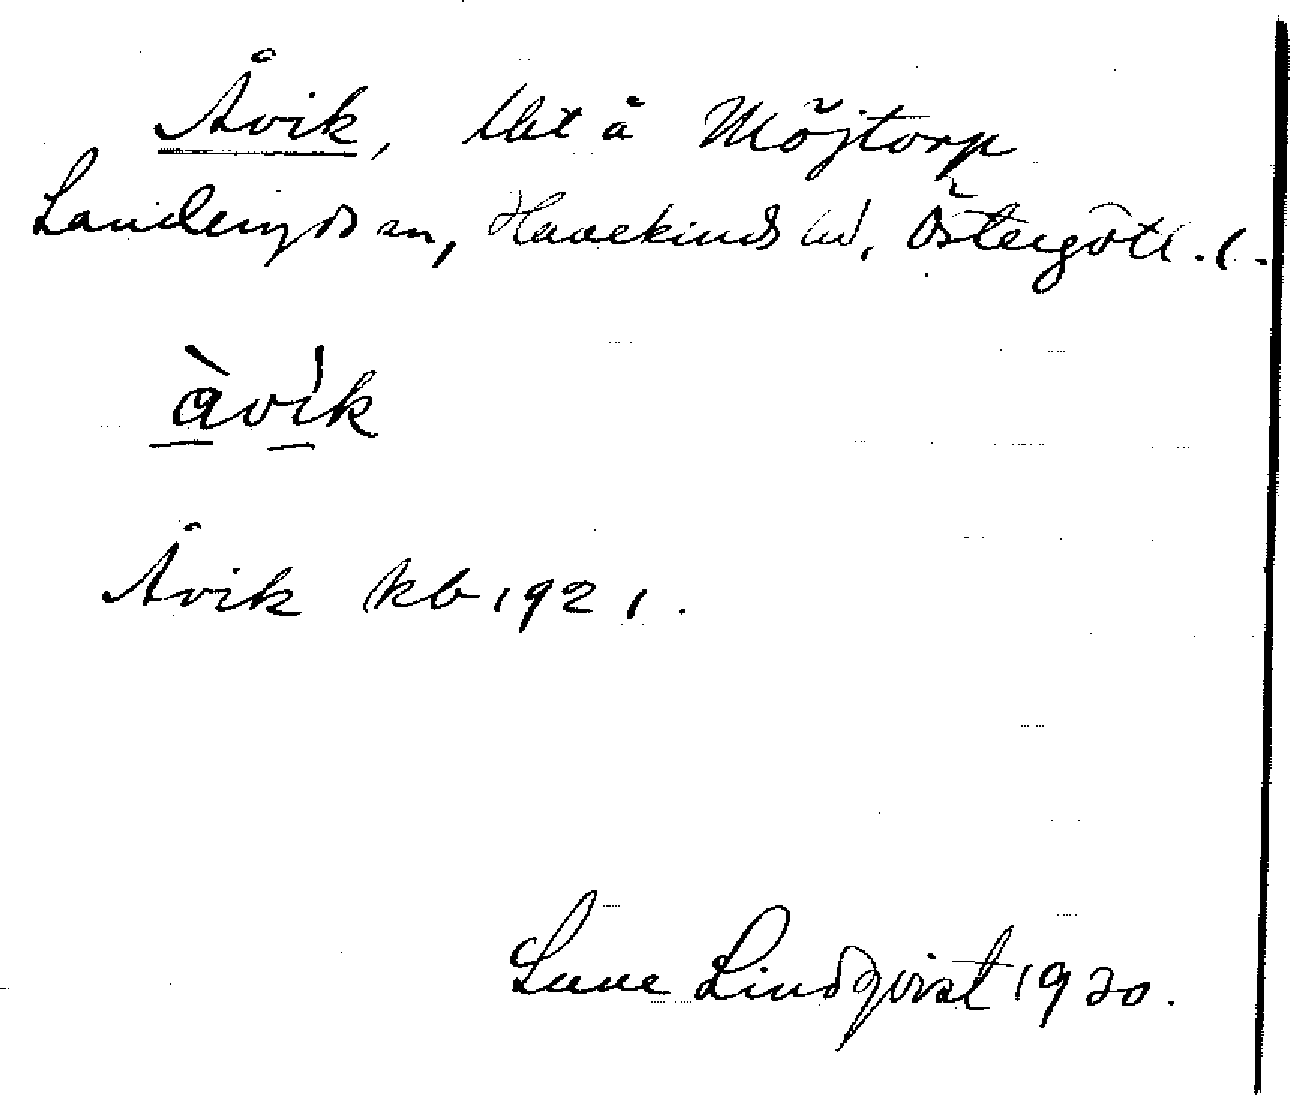 Åvik, lht å Möjtorp
Landeryds sn, Hanekinds hd, Östergötl. l.
àvík
Åvik kb 1921.
Sune Lindqvist 1930.